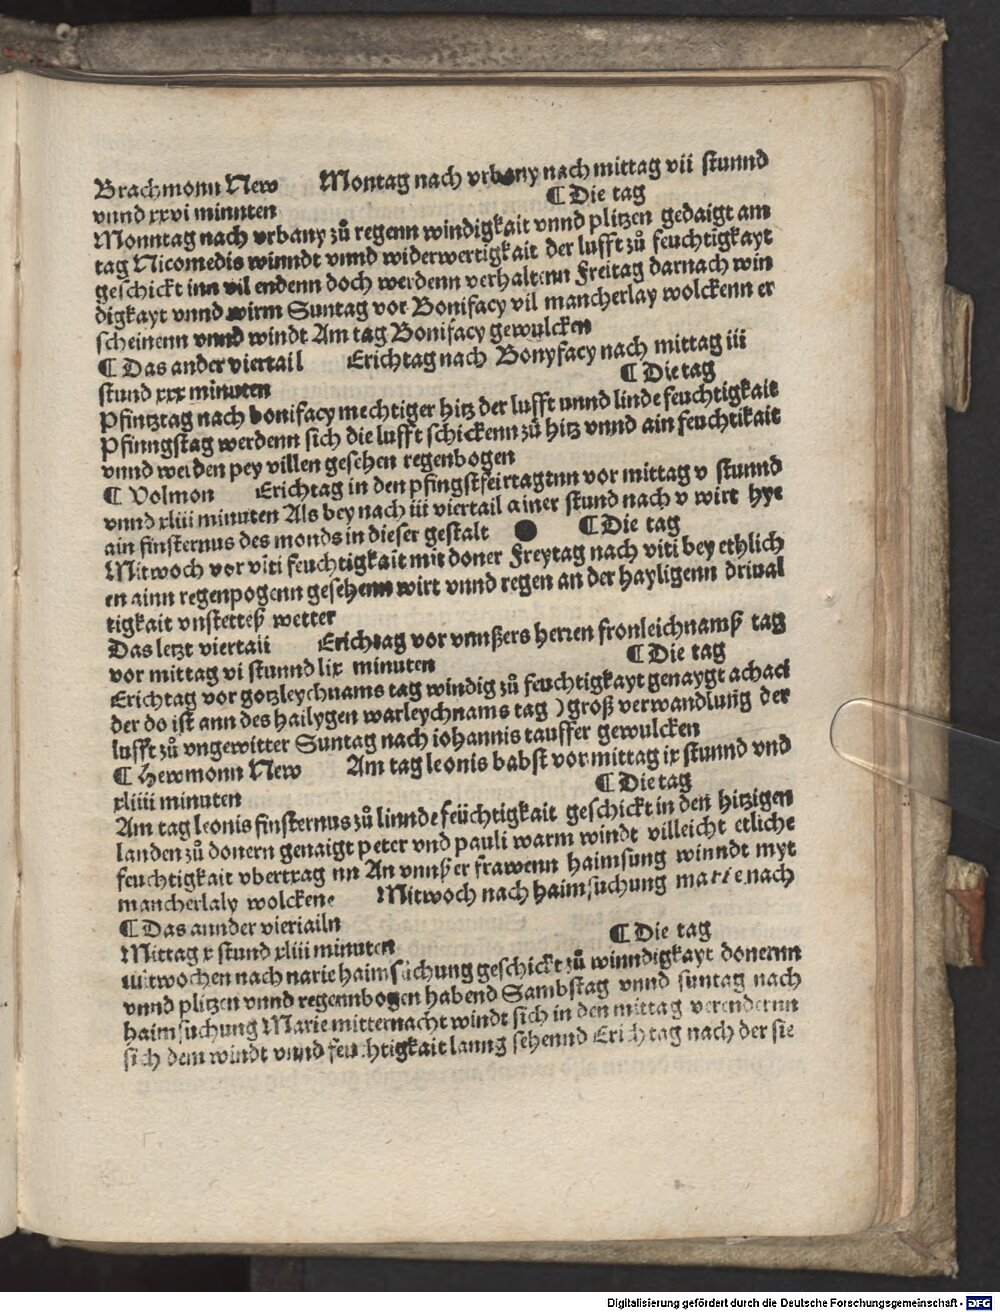 Brachmonn New Montag nach vrbany nach mittag vii stunnd
vnnd xxvi minnten ¶ Die tag
Monntag nach vrbany zů regenn windigkait vnnd plitzen gedaigt am
tag Nicomedis winndt vnnd widerwertigkait der lufft zů feuchtigkayt
geschickt inn vil endenn doch werdenn verhaltenn Freitag darnach win
digkayt vnnd wirm Suntag vor Bonifacy vil mancherlay wolckenn er
scheinenn vnnd windt Am tag Bonifacy gewulcken
¶ Das ander viertail Erichtag nach Bonyfacy nach mittag iii
stund xxx minuten ¶ Die tag
Pfintztag nach bonifacy mechtiger hitz der lufft vnnd linde feuchtigkait
Pfinngstag werdenn sich die lufft schickenn zů hitz vnnd ain feuchtikait
vnnd werden pey villen gesehen regenbogen
¶ Volmon Erichtag in den pfingstfeirtagenn vor mittag v stunnd
vnnd xliii minuten Als bey nach iii viertail ainer stund nach v wirt hye
ain finsternus des monds in dieser gestalt ¶ Die tag
Mitwoch vor viti feuchtigkait mit doner Freytag nach viti bey ethlich
en ainn regenpogenn gesehenn wirt vnnd regen an der hayligenn drival
tigkait vnstetteß wetter
Das letzt viertail Erichtag vor vnnßers herren fronleichnamß tag
vor mittag vi stunnd lix minuten ¶ Die tag
Erichtag vor gotzleychnams tag windig zů feuchtigkayt genaygt achaci
der do ist ann des hailygen warleychnams tag ) groß verwandlung der
lufft zů vngewitter Suntag nach iohannis tauffer gewulcken
¶ Hewmonn New Am tag leonis babst vor mittag ix stunnd vnd
xliiii minuten ¶ Die tag
Am tag leonis finsternus zů linnde feüchtigkait geschickt in den hitzigen
landen zů donern genaigt peter vnd pauli warm windt villeicht etliche
feuchtigkait vbertrag nn An vnnßer frawenn haimsung winndt myt
mancherlaly wolckene Mitwoch nach haimsuchung marie nach
¶ Das annder vieriailn
Mittag x stund xliii minuten ¶ Die tag
mitwochen nach narie haimsůchung geschickt zů winndigkayt donernn
vnnd plitzen vnnd regennbogen habend Sambstag vnnd suntag nach
haimsuchung Marie mitternacht windt sich in den mittag verendernn
sich dem windt vnnd feuchtigkait lanng sehennd Erichtag nach der sie
Digitalisierung gefördert durch die Deutsche Forschungsgemeinschaft - DFG